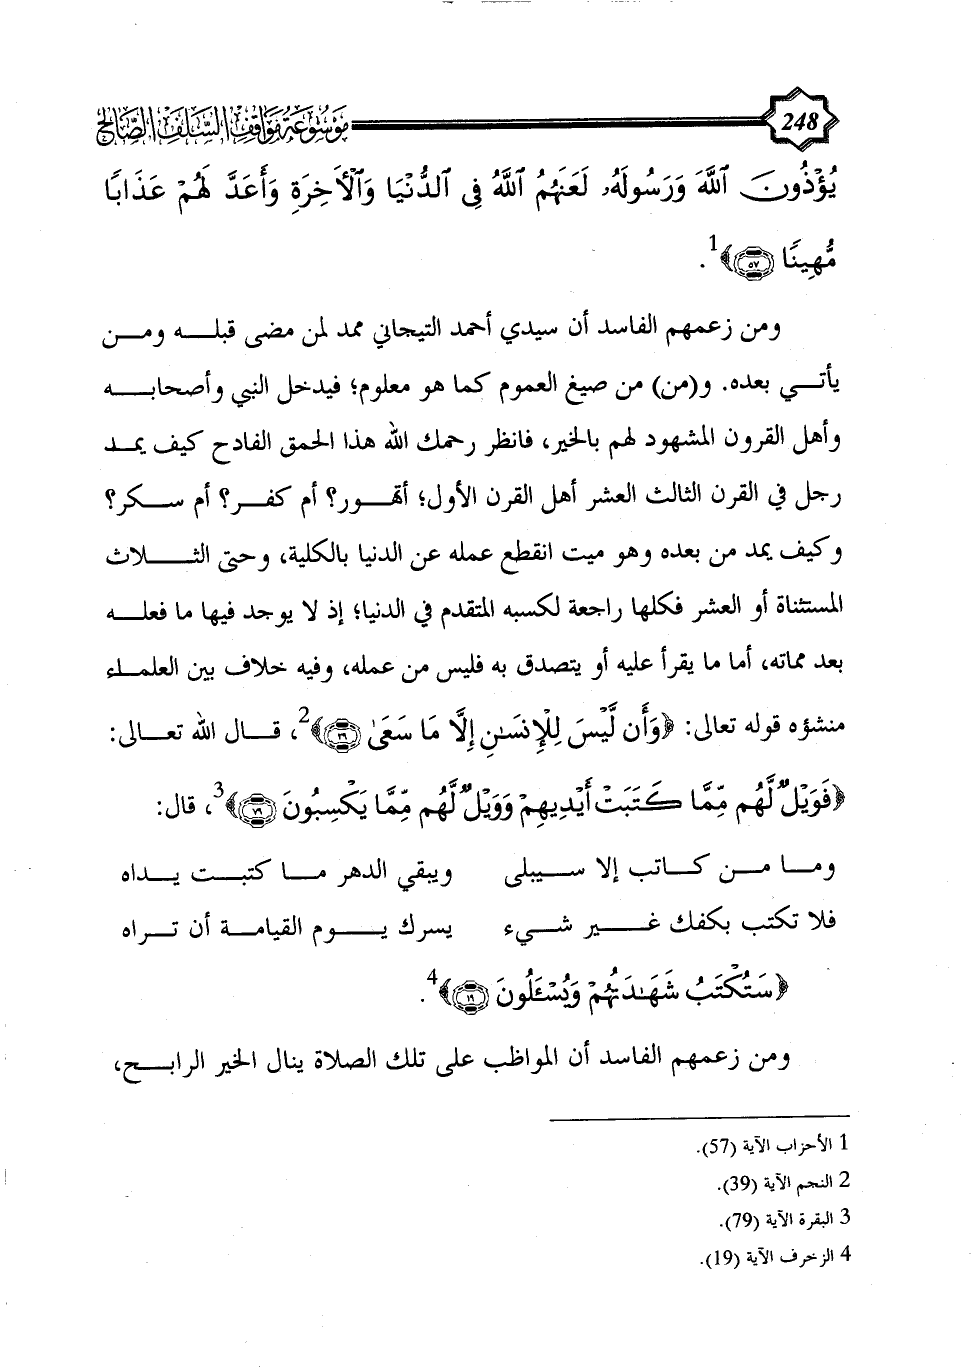 248
موسوعة مواقف السلف الصالح
يُؤْذُونَ ٱللَّهَ وَرَسُولَهُۥ لَعَنَهُمُ ٱللَّهُ فِى ٱلدُّنْيَا وَٱلْأَخِرَةِ وَأَعَدَّ لَهُمْ عَذَابًا
مُّهِينًا ﴿٥٧﴾﴾1.
ومن زعمهم الفاسد أن سيدي أحمد التيجاني ممد لمن مضى قبله ومن
يأتي بعده. و(من) من صيغ العموم كما هو معلوم؛ فيدخل النبي وأصحابه
وأهل القرون المشهود لهم بالخير، فانظر رحمك الله هذا الحمق الفادح كيف يمد
رجل في القرن الثالث العشر أهل القرن الأول؛ أتهور؟ أم كفر؟ أم سكر؟
وكيف يمد من بعده وهو ميت انقطع عمله عن الدنيا بالكلية، وحتى الثلاث
المستثناة أو العشر فكلها راجعة لكسبه المتقدم في الدنيا؛ إذ لا يوجد فيها ما فعله
بعد مماته، أما ما يقرأ عليه أو يتصدق به فليس من عمله، وفيه خلاف بين العلماء
منشؤه قوله تعالى: ﴿وَأَن لَّيْسَ لِلْإِنسَٰنِ إِلَّا مَا سَعَىٰ ﴿٣٩﴾﴾2، قال الله تعالى:
﴿فَوَيْلٌ لَّهُم مِّمَّا كَتَبَتْ أَيْدِيهِمْ وَوَيْلٌ لَّهُم مِّمَّا يَكْسِبُونَ ﴿٧٩﴾﴾3، قال:
وما من كاتب إلا سيبلى ويبقي الدهر ما كتبت يداه
فلا تكتب بكفك غير شيء يسرك يوم القيامة أن تراه
﴿سَتُكْتَبُ شَهَٰدَتُهُمْ وَيُسْـَٔلُونَ ﴿١٩﴾﴾4.
ومن زعمهم الفاسد أن المواظب على تلك الصلاة ينال الخير الرابح،
1 الأحزاب الآية (57).
2 النجم الآية (39).
3 البقرة الآية (79).
4 الزخرف الآية (19).